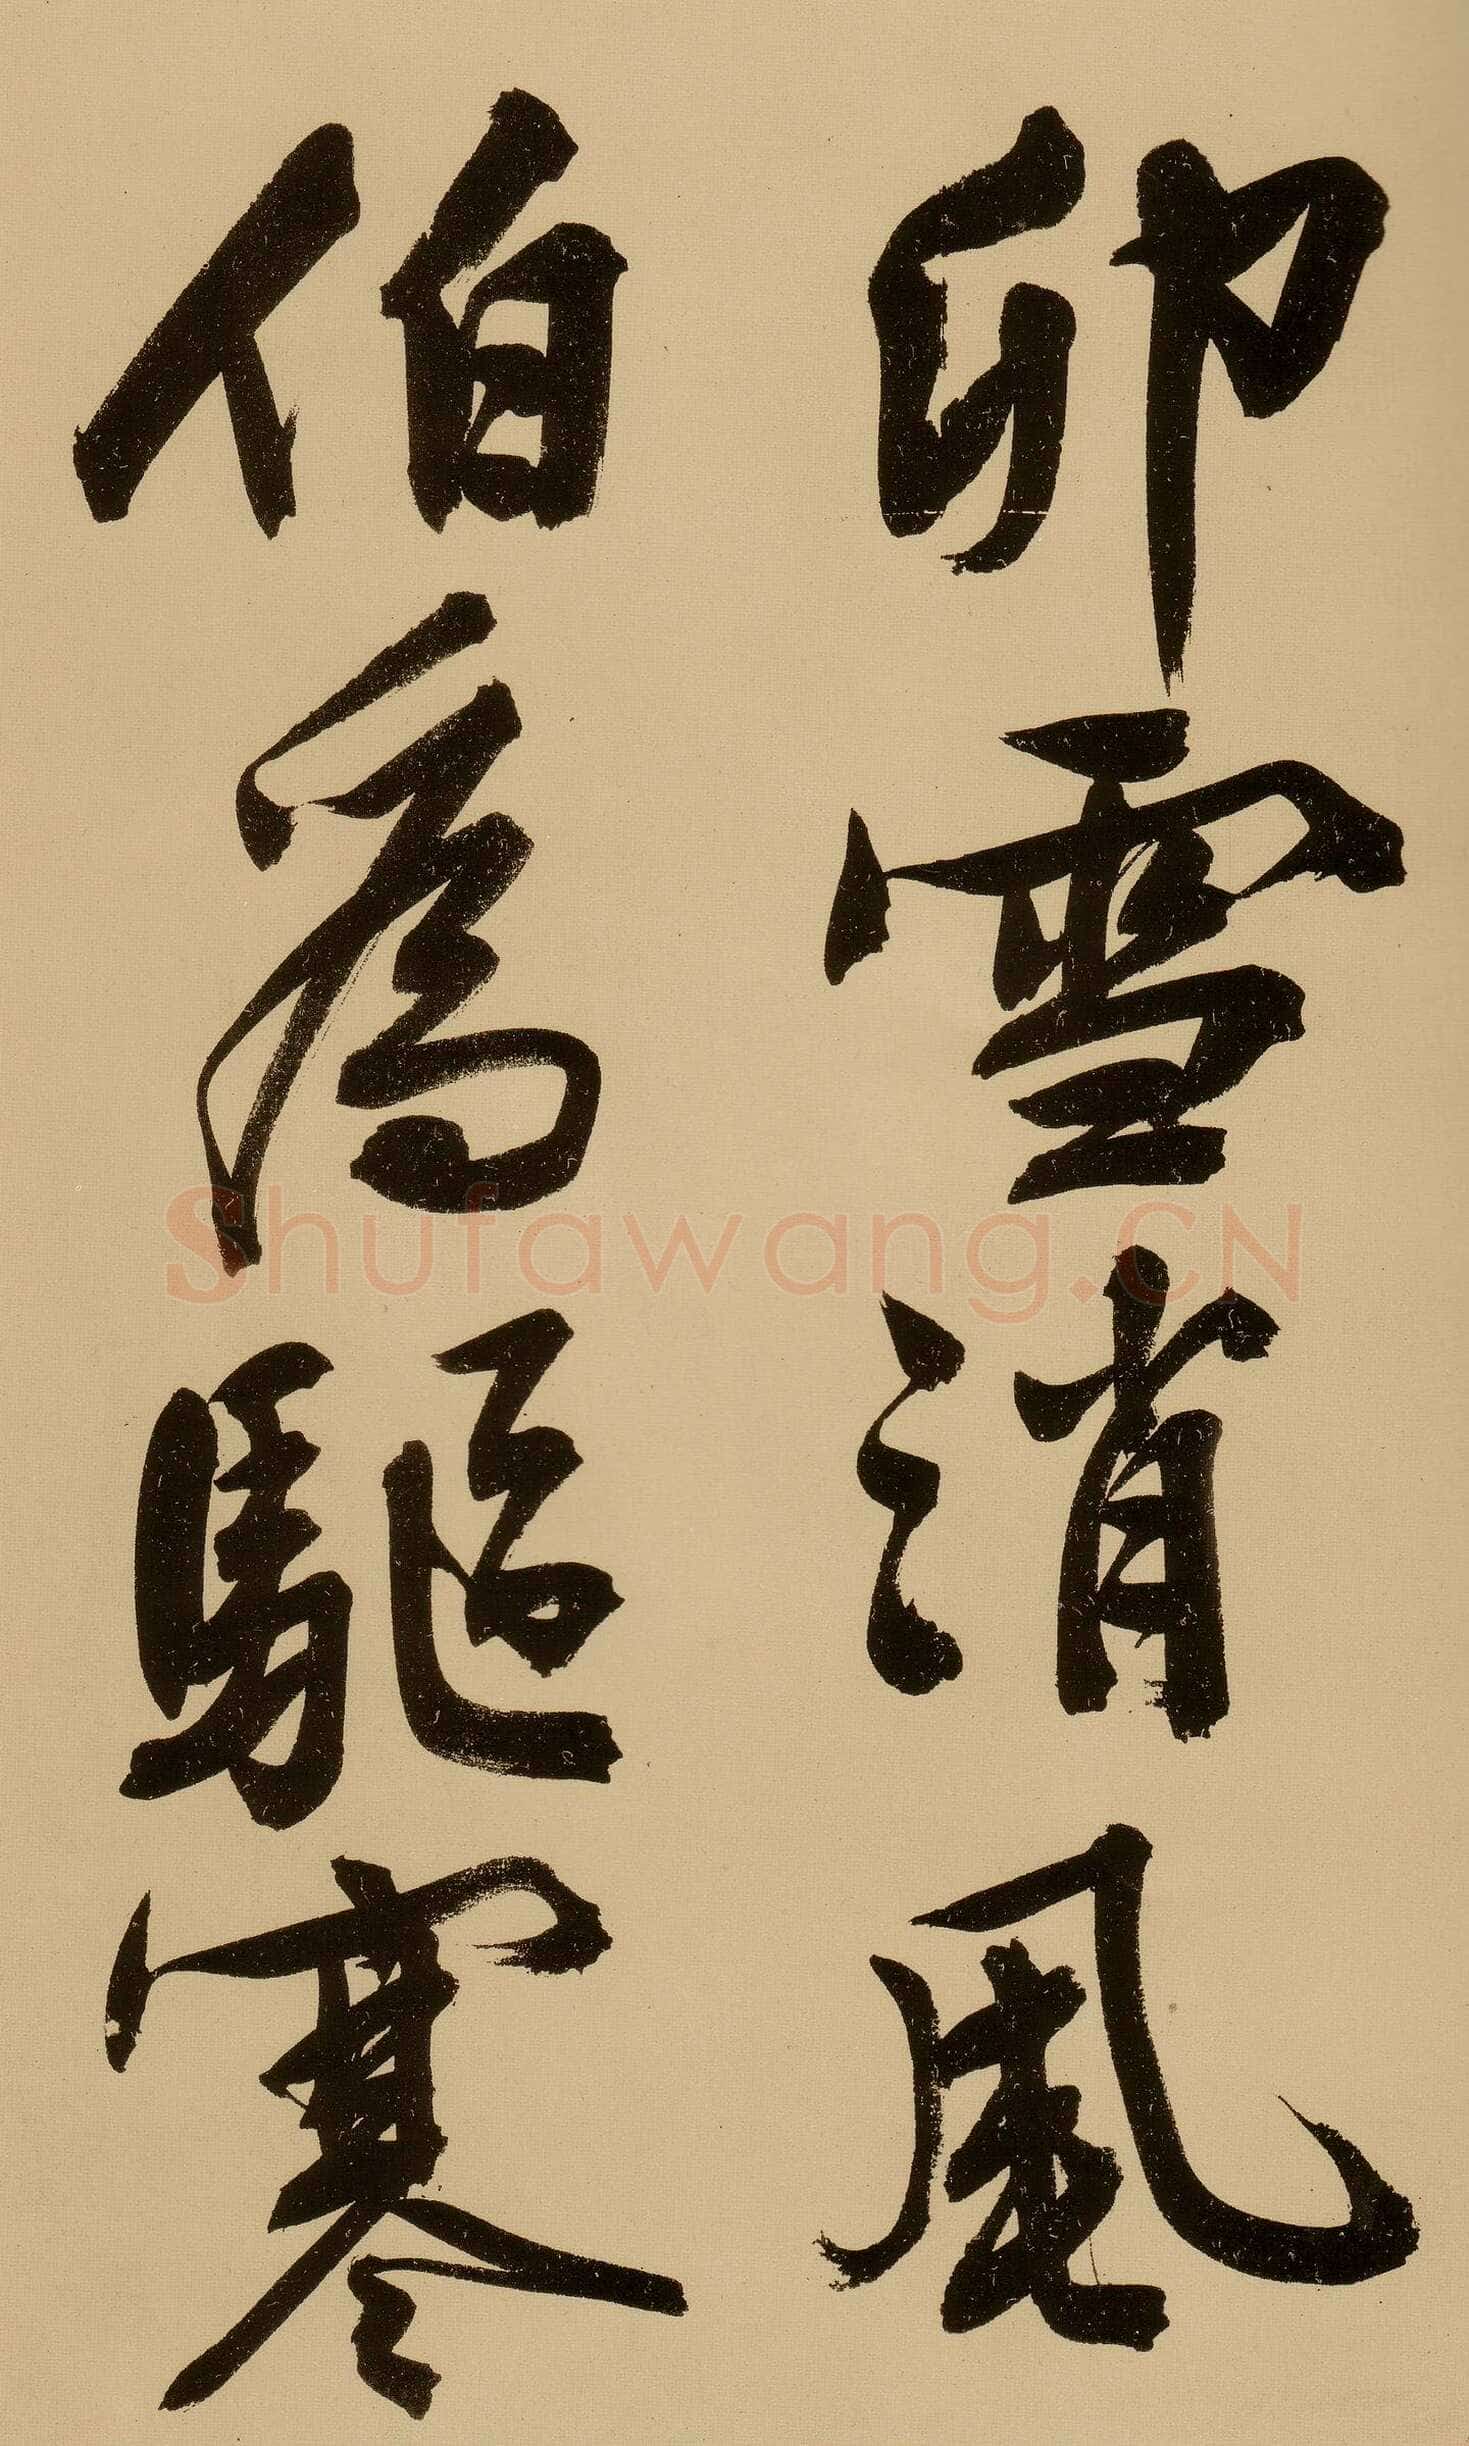 卯雪消風
伯為驅寒
Shufawang.CN